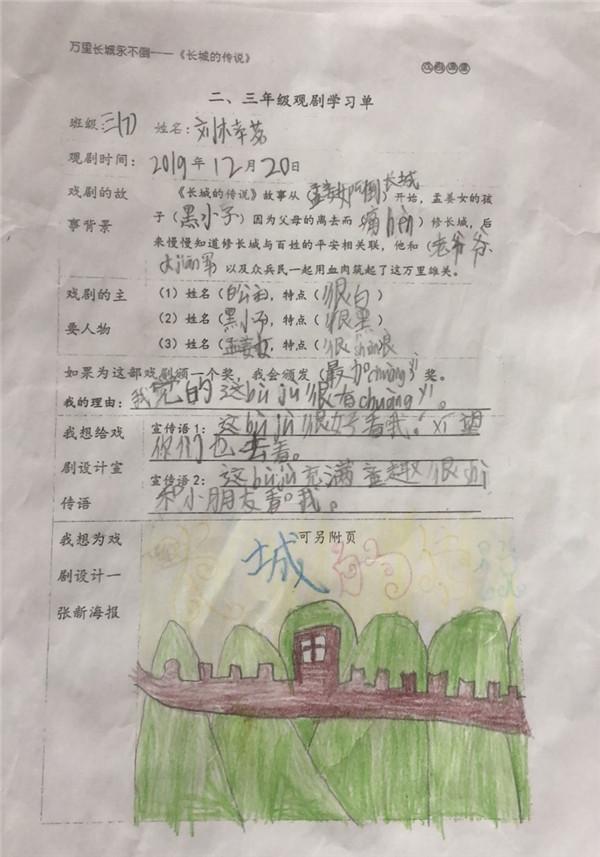 万里长城永不倒——《长城的传说》
戏剧课堂
二、三年级观剧学习单
班级:三(7) 姓名:刘沐
观剧时间:2019年12月20日
戏剧的故事背景
《长城的传说》故事从(孟姜女哭倒长城)开始,孟姜女的孩
子(黑小子)因为父母的离去而()修长城,后
来慢慢知道修长城与百姓的平安相关联,他和(老爷爷
大将军)以及众兵民一起用血肉筑起了这万里雄关。
戏剧的主要人物
(1)姓名(白公主),特点(很白)
(2)姓名(黑小子),特点(很黑)
(3)姓名(孟姜女),特点(很)
如果为这部戏剧颁一个奖,我会颁发(最加chuāng yì)奖。
我的理由:我觉的这bù jù很有chuàng yì。
我想给戏剧设计宣传语
宣传语1:这bù jù很好看哦!xī望
你们也去看。
宣传语2:这bù jù充满童趣很shì
和小朋友看哦。
我想为戏剧设计一张新海报
可另附页
城